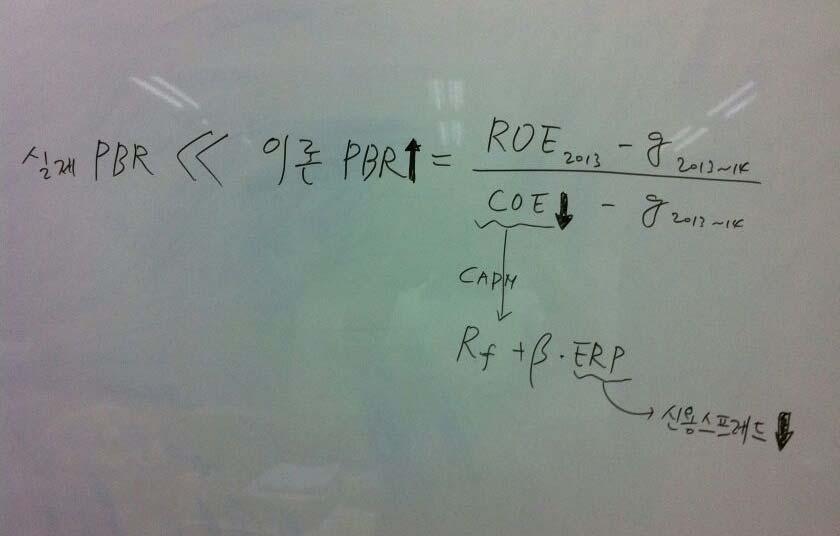 실제 PBR ≪ 이론 PBR⬆ = (ROE₂₀₁₃ - g₂₀₁₃~₁₄) / (COE⬇ - g₂₀₁₃~₁₄)
CAPM
Rf + β · ERP
신용스프레드⬇